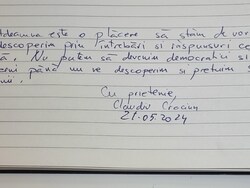 este o plăcere să stăm de vor
descoperim prin întrebări si răspunsuri ce
ă. Nu putem să devenim democratici si
erni până nu ne descoperim si prețuim s
nii.
Cu prietenie,
Claudiu Crăciun
21.05.2024